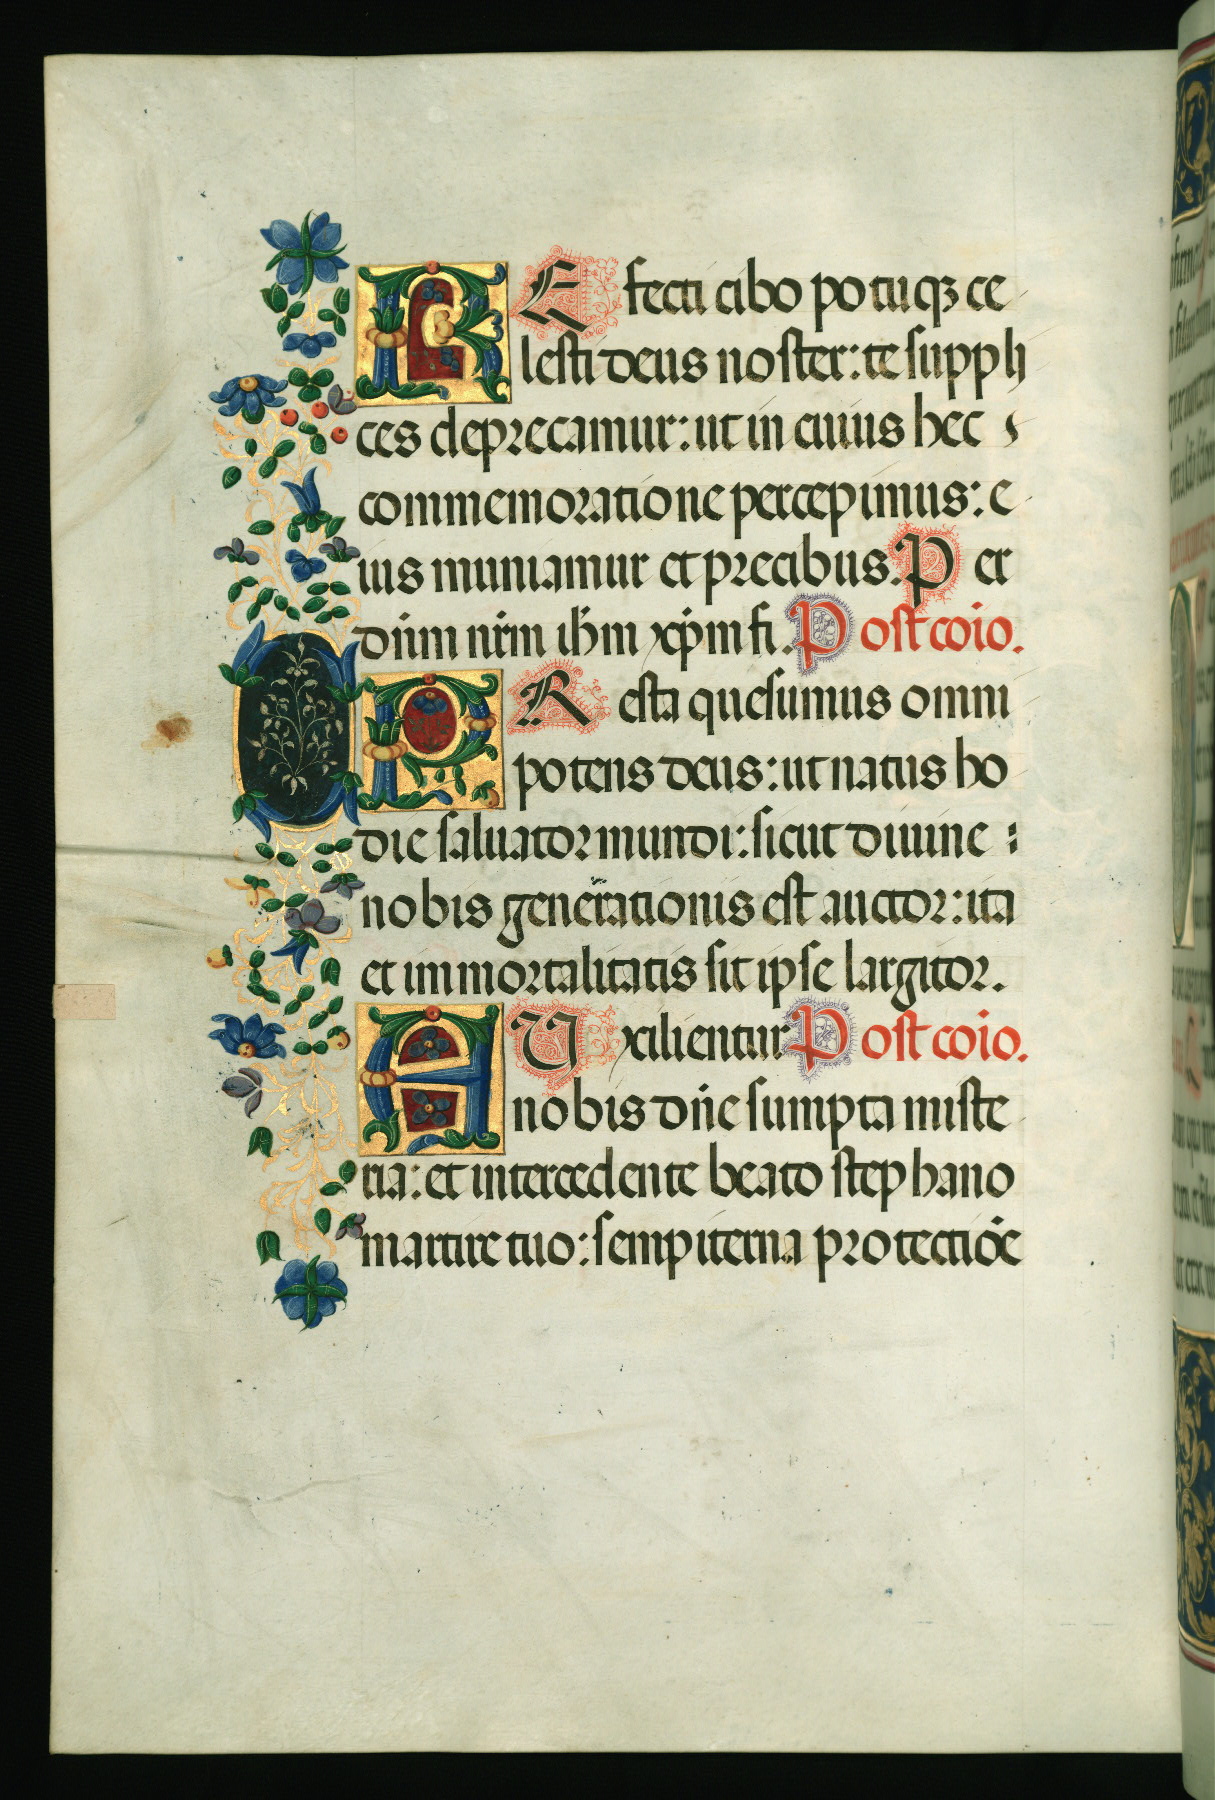 REfecti cibo potuq3 ce
lesti deus noster: te suppli
ces deprecamur: ut in cuius hec
commemoratione percepimus: e
ius muniamur et precibus. Per
dnm nrm ihm xpm fi. Post coio.
PResta quesumus omni
potens deus: ut natus ho
die saluator mundi: sicut diuine
nobis generationis est auctor: ita
et immortalitatis sit ipse largitor.
AUxilientur Post coio.
nobis dne sumpta miste
ria: et intercedente beato stephano
martire tuo: sempiterna protectioe